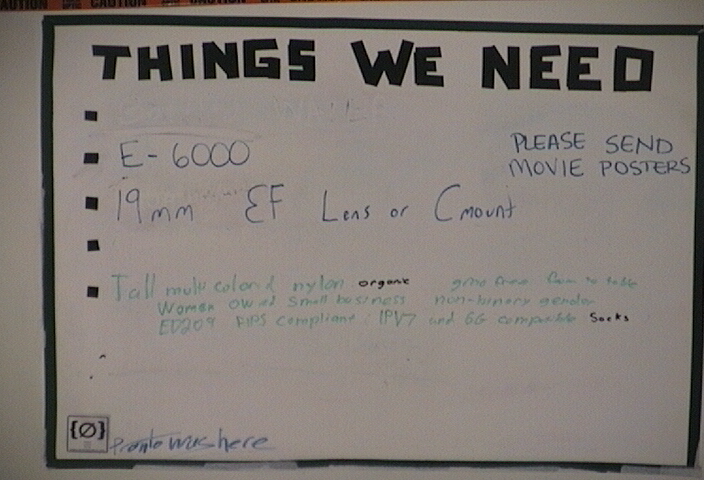 CAUTION CAUTION CAUTION
THINGS WE NEED
E-6000
PLEASE SEND
MOVIE POSTERS
19mm EF Lens or C mount
Tall multi colored nylon organic gmo free farm to table
Women owned small business non-binary gender
ED209 FIPS compliant IPV7 and 6G compatible Socks
{Ø}
Pronto was here